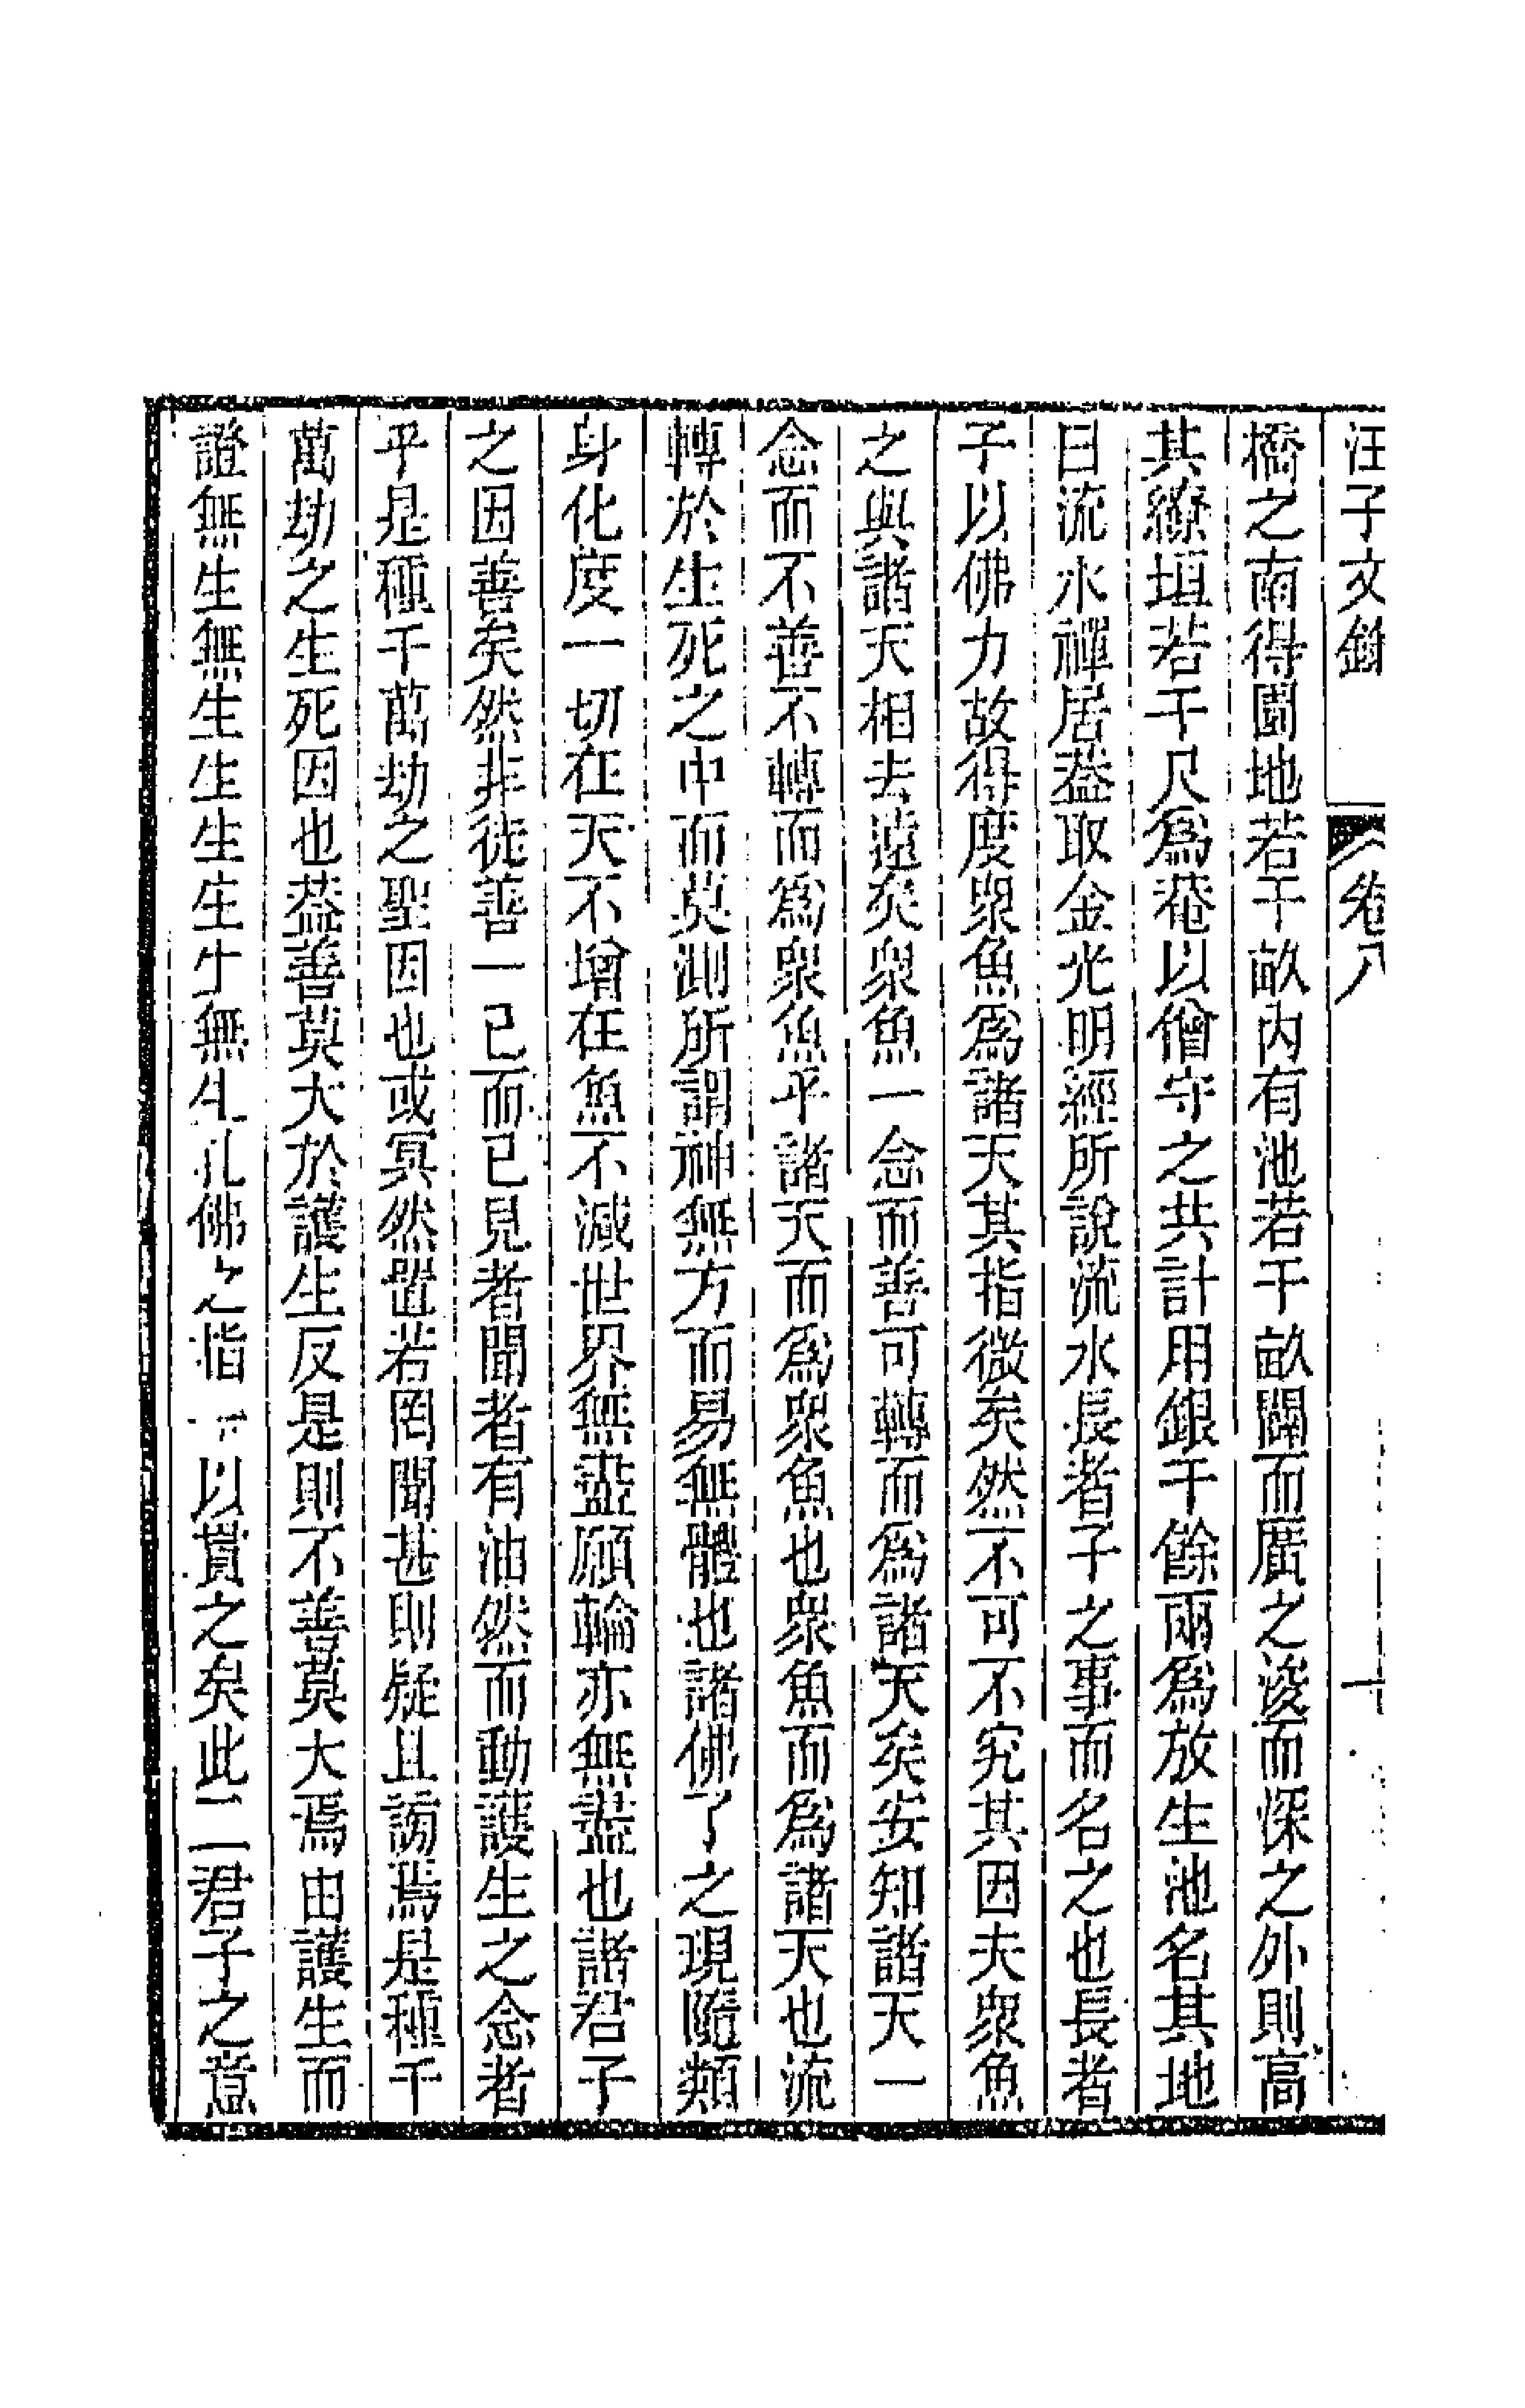 汪子文錄 卷八 十
橋之南得園地若干畝內有池若干畝闢而廣之浚而深之外則高
其繚垣若干尺爲菴以僧守之共計用銀千餘兩爲放生池名其地
曰流水禪居葢取金光明經所說流水長者子之事而名之也長者
子以佛力故得度衆魚爲諸天其指微矣然不可不究其因夫衆魚
之與諸天相去遠矣衆魚一念而善可轉而爲諸天矣安知諸天一
念而不善不轉而爲衆魚乎諸天而爲衆魚也衆魚而爲諸天也流
轉於生死之中而莫測所謂神無方而易無體也諸佛了之現隨類
身化度一切在天不增在魚不減世界無盡願輪亦無盡也諸君子
之因善矣然非徒善一己而已見者聞者有油然而動護生之念者
乎是種千萬劫之聖因也或冥然置若罔聞甚則疑且謗焉是種千
萬劫之生死因也葢善莫大於護生反是則不善莫大焉由護生而
證無生無生生生生生無生孔佛之指一以貫之矣此二君子之意